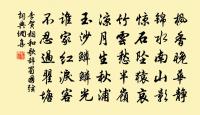 楓香晚華靜
錦水南山影
驚石墜猿哀
竹雲愁半嶺
涼月生秋浦
玉沙鱗鱗光
誰家紅淚客
不忍過瞿塘
李賀相和歌辭蜀國弦
詞典網集